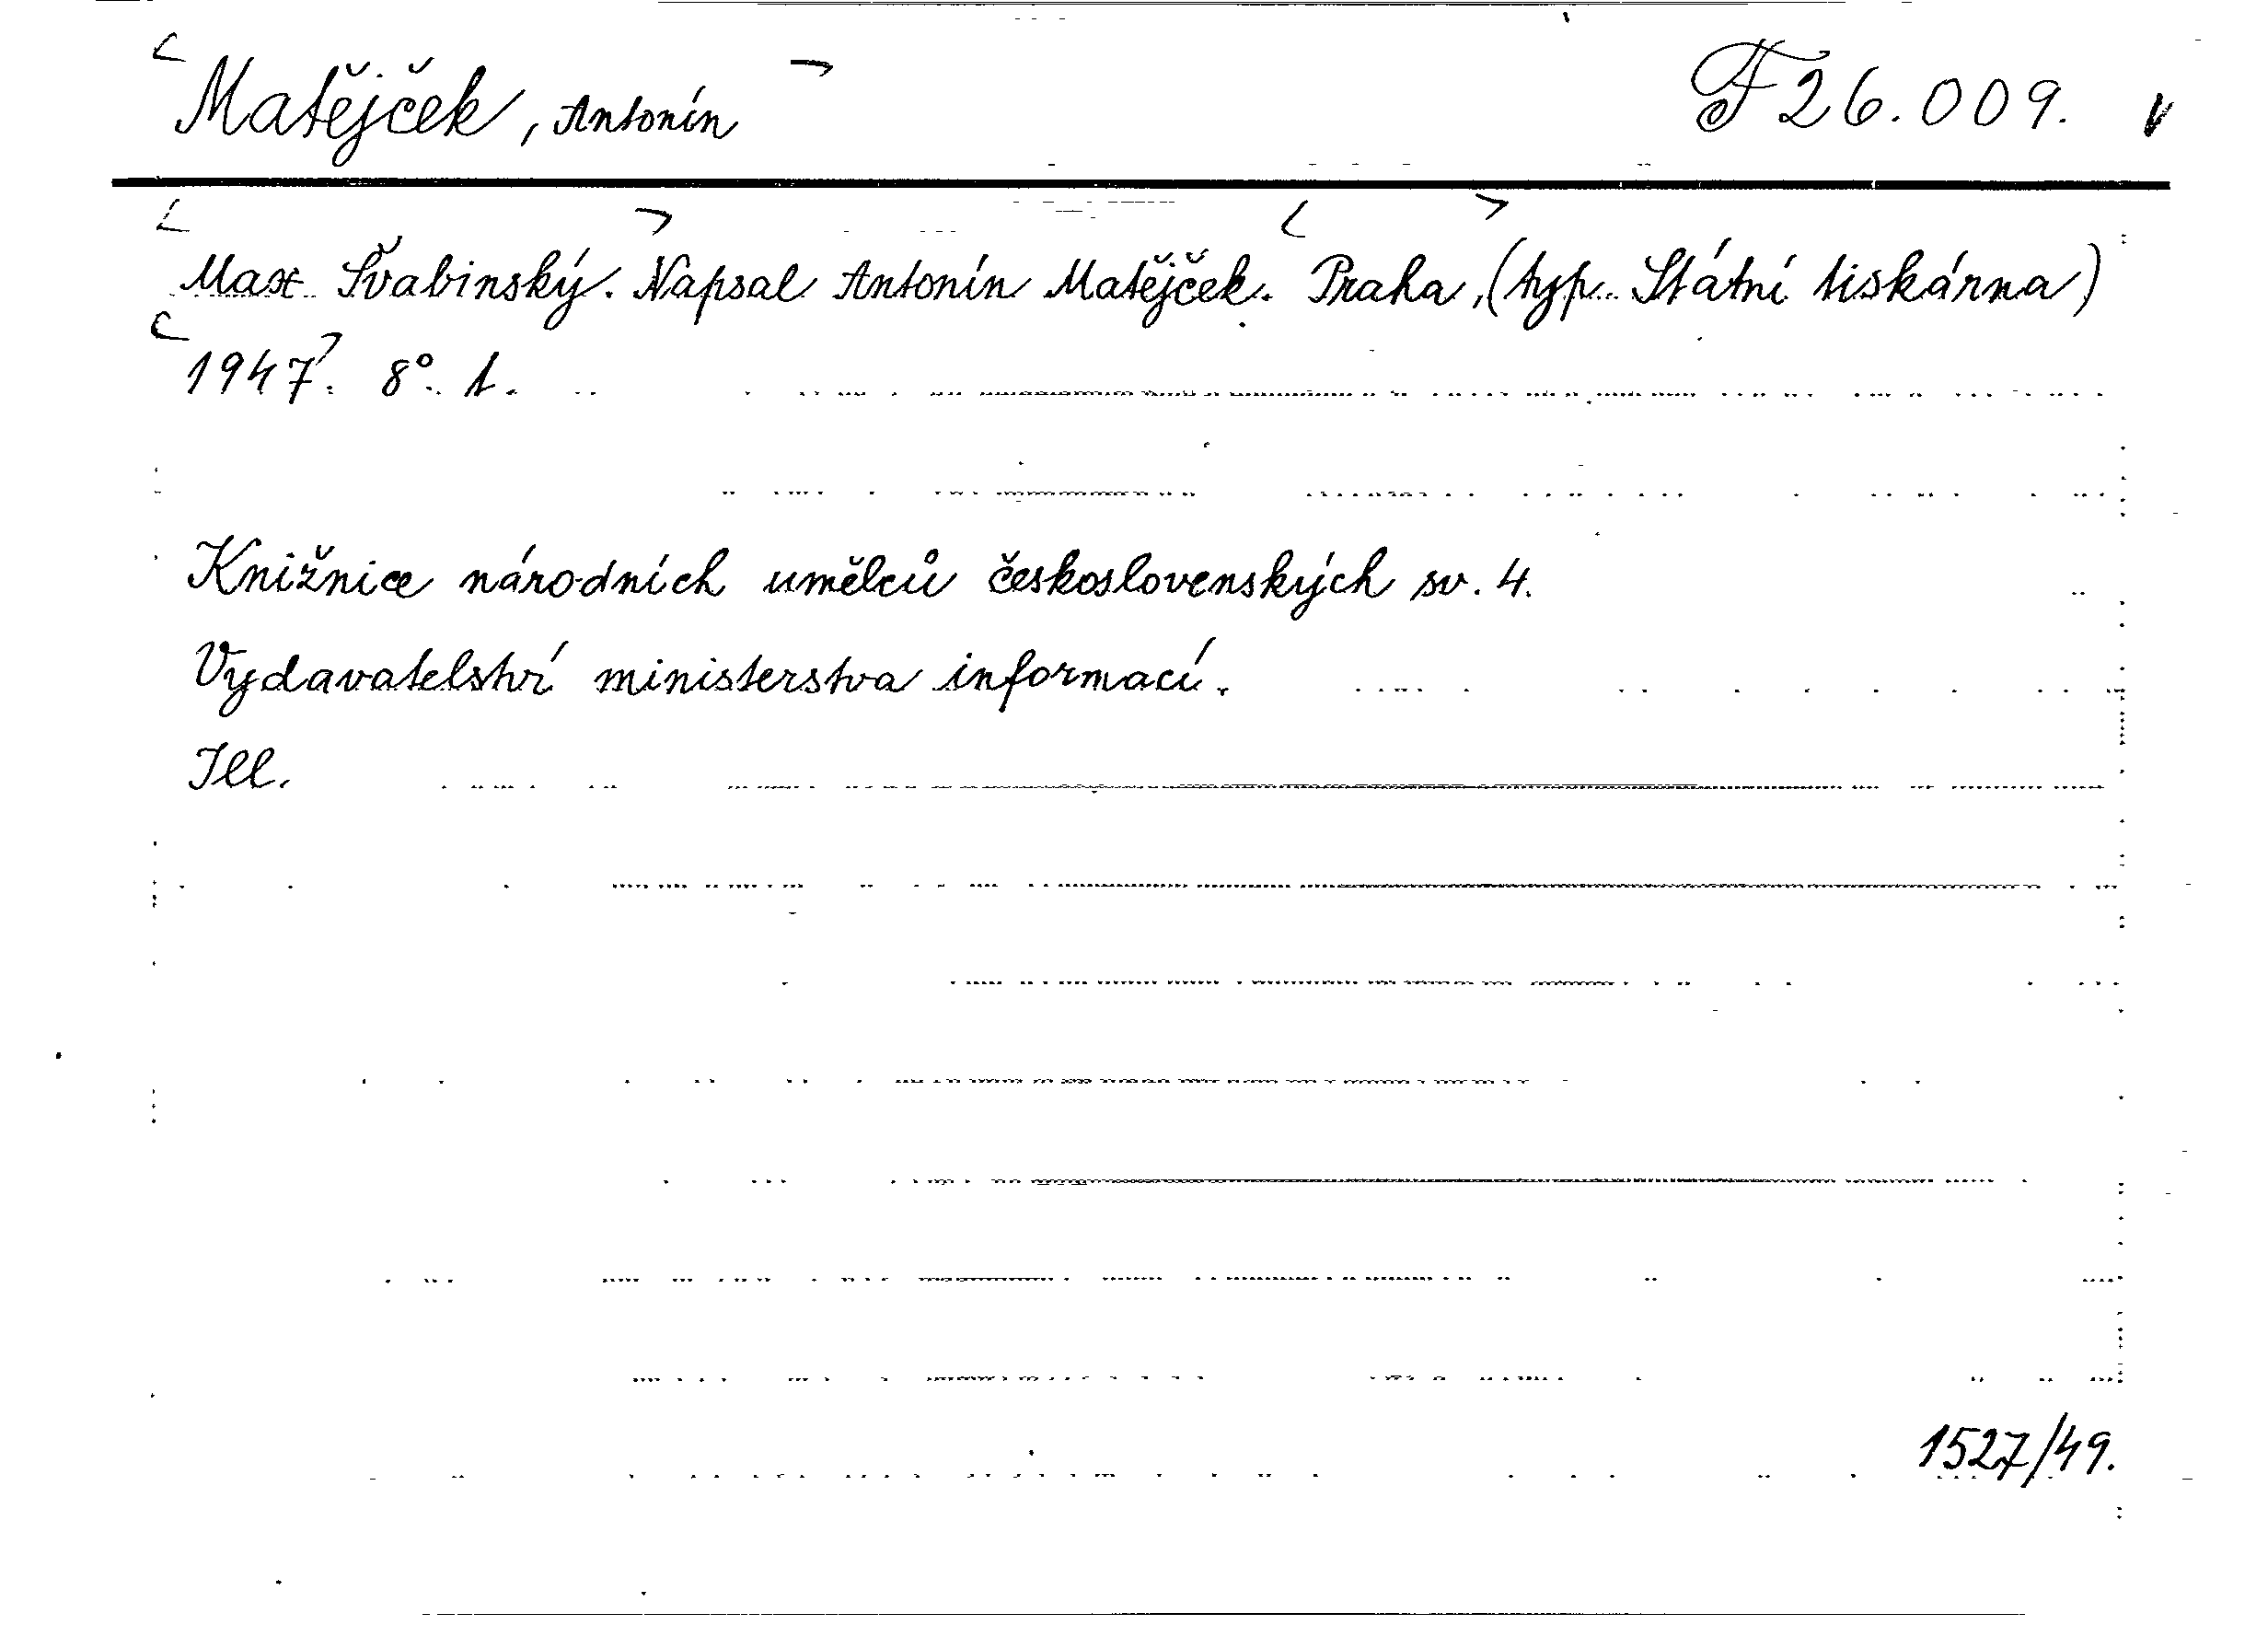 Matějček, Antonín F 26.009. v
Max Švabinský. Napsal Antonín Matějček. Praha, (typ. Státní tiskárna)
1947. 8°. 1.
Knižnice národních umělců československých sv. 4.
Vydavatelství ministerstva informací.
Ill.
1527/49.